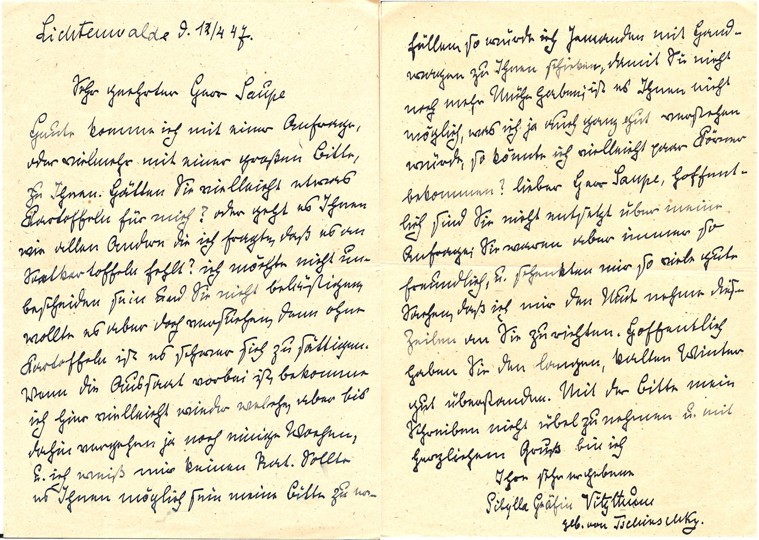 Lichtenwalde d. 12/4 47.
Sehr geehrter Herr Saupe
Heute komme ich mit einer Anfrage,
oder vielmehr mit einer großen Bitte,
zu Ihnen. Hätten Sie vielleicht etwas
Kartoffeln für mich? oder geht es Ihnen
wie allen Andern die ich fragte, daß es an
Saatkartoffeln fehlt? ich möchte nicht un-
bescheiden sein und Sie nicht belästigen,
wollte es aber doch versuchen, denn ohne
Kartoffeln ist es schwer sich zu sättigen.
Wenn die Aussaat vorbei ist, bekomme
ich hier vielleicht wieder welche, aber bis
dahin vergehen ja noch einige Wochen,
u. ich weiß mir keinen Rat. Sollte
es Ihnen möglich sein meine Bitte zu er-
füllen, so würde ich Jemanden mit Hand-
wagen zu Ihnen schicken, damit Sie nicht
noch mehr Mühe haben; ist es Ihnen nicht
möglich, was ich ja auch ganz gut verstehen
würde, so könnte ich vielleicht paar Körner
bekommen? lieber Herr Saupe, hoffent-
lich sind Sie nicht entsetzt über meine
Anfrage; Sie waren aber immer so
freundlich, u. schenkten mir so viele gute
Sachen, daß ich mir den Mut nehme diese
Zeilen an Sie zu richten. Hoffentlich
haben Sie den langen, kalten Winter
gut überstanden. Mit der Bitte mein
Schreiben nicht übel zu nehmen u. mit
herzlichem Gruß bin ich
Ihre sehr ergebene
Sibylla Gräfin Vitzthum
geb. von Tschirschky.